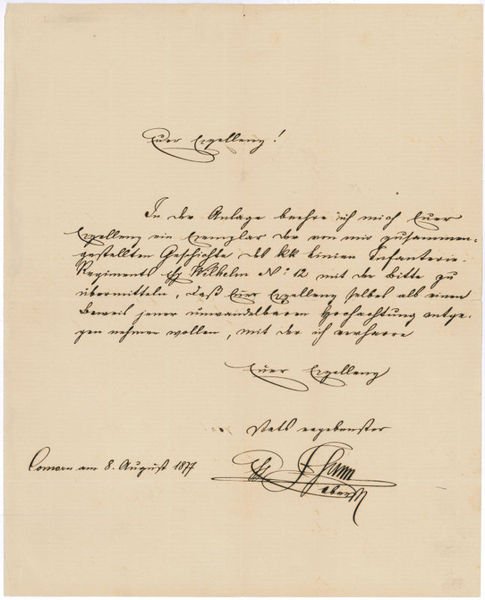 Euer Exzellenz!
In der Anlage beehre ich mich Euer
Exzellenz ein Exemplar der von mir zusammen-
gestellten Geschichte des kk Linien Infanterie-
Regiments Wilhelm No 12 mit der Bitte zu
übermitteln, daß Euer Exzellenz selbes als einen
Beweis jener unwandelbaren Hochachtung entge-
gen nehmen wollen, mit der ich verharre
Euer Exzellenz
stets ergebenster
Comorn am 8. August 1877
Oberst